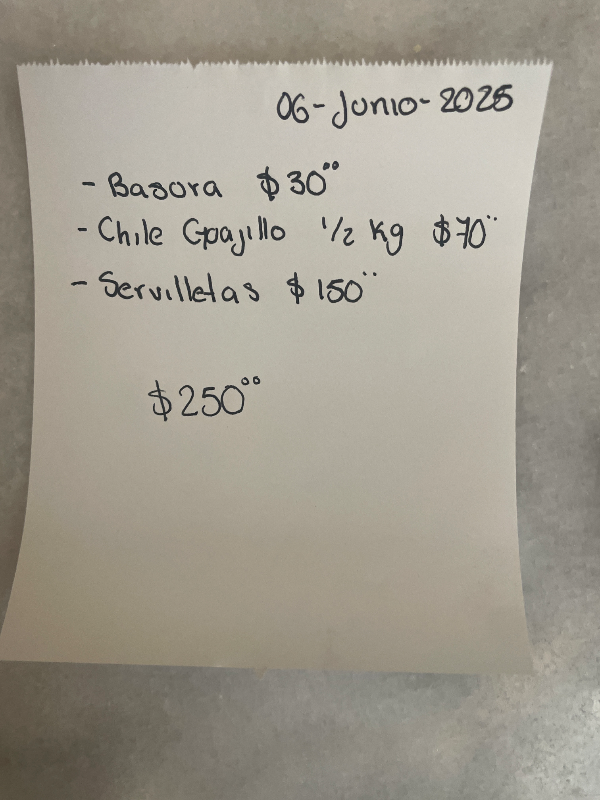 06-Junio-2025
- Basora $30⁰⁰
- Chile Guajillo 1/2 Kg $70⁰⁰
- Servilletas $150⁰⁰
$250⁰⁰